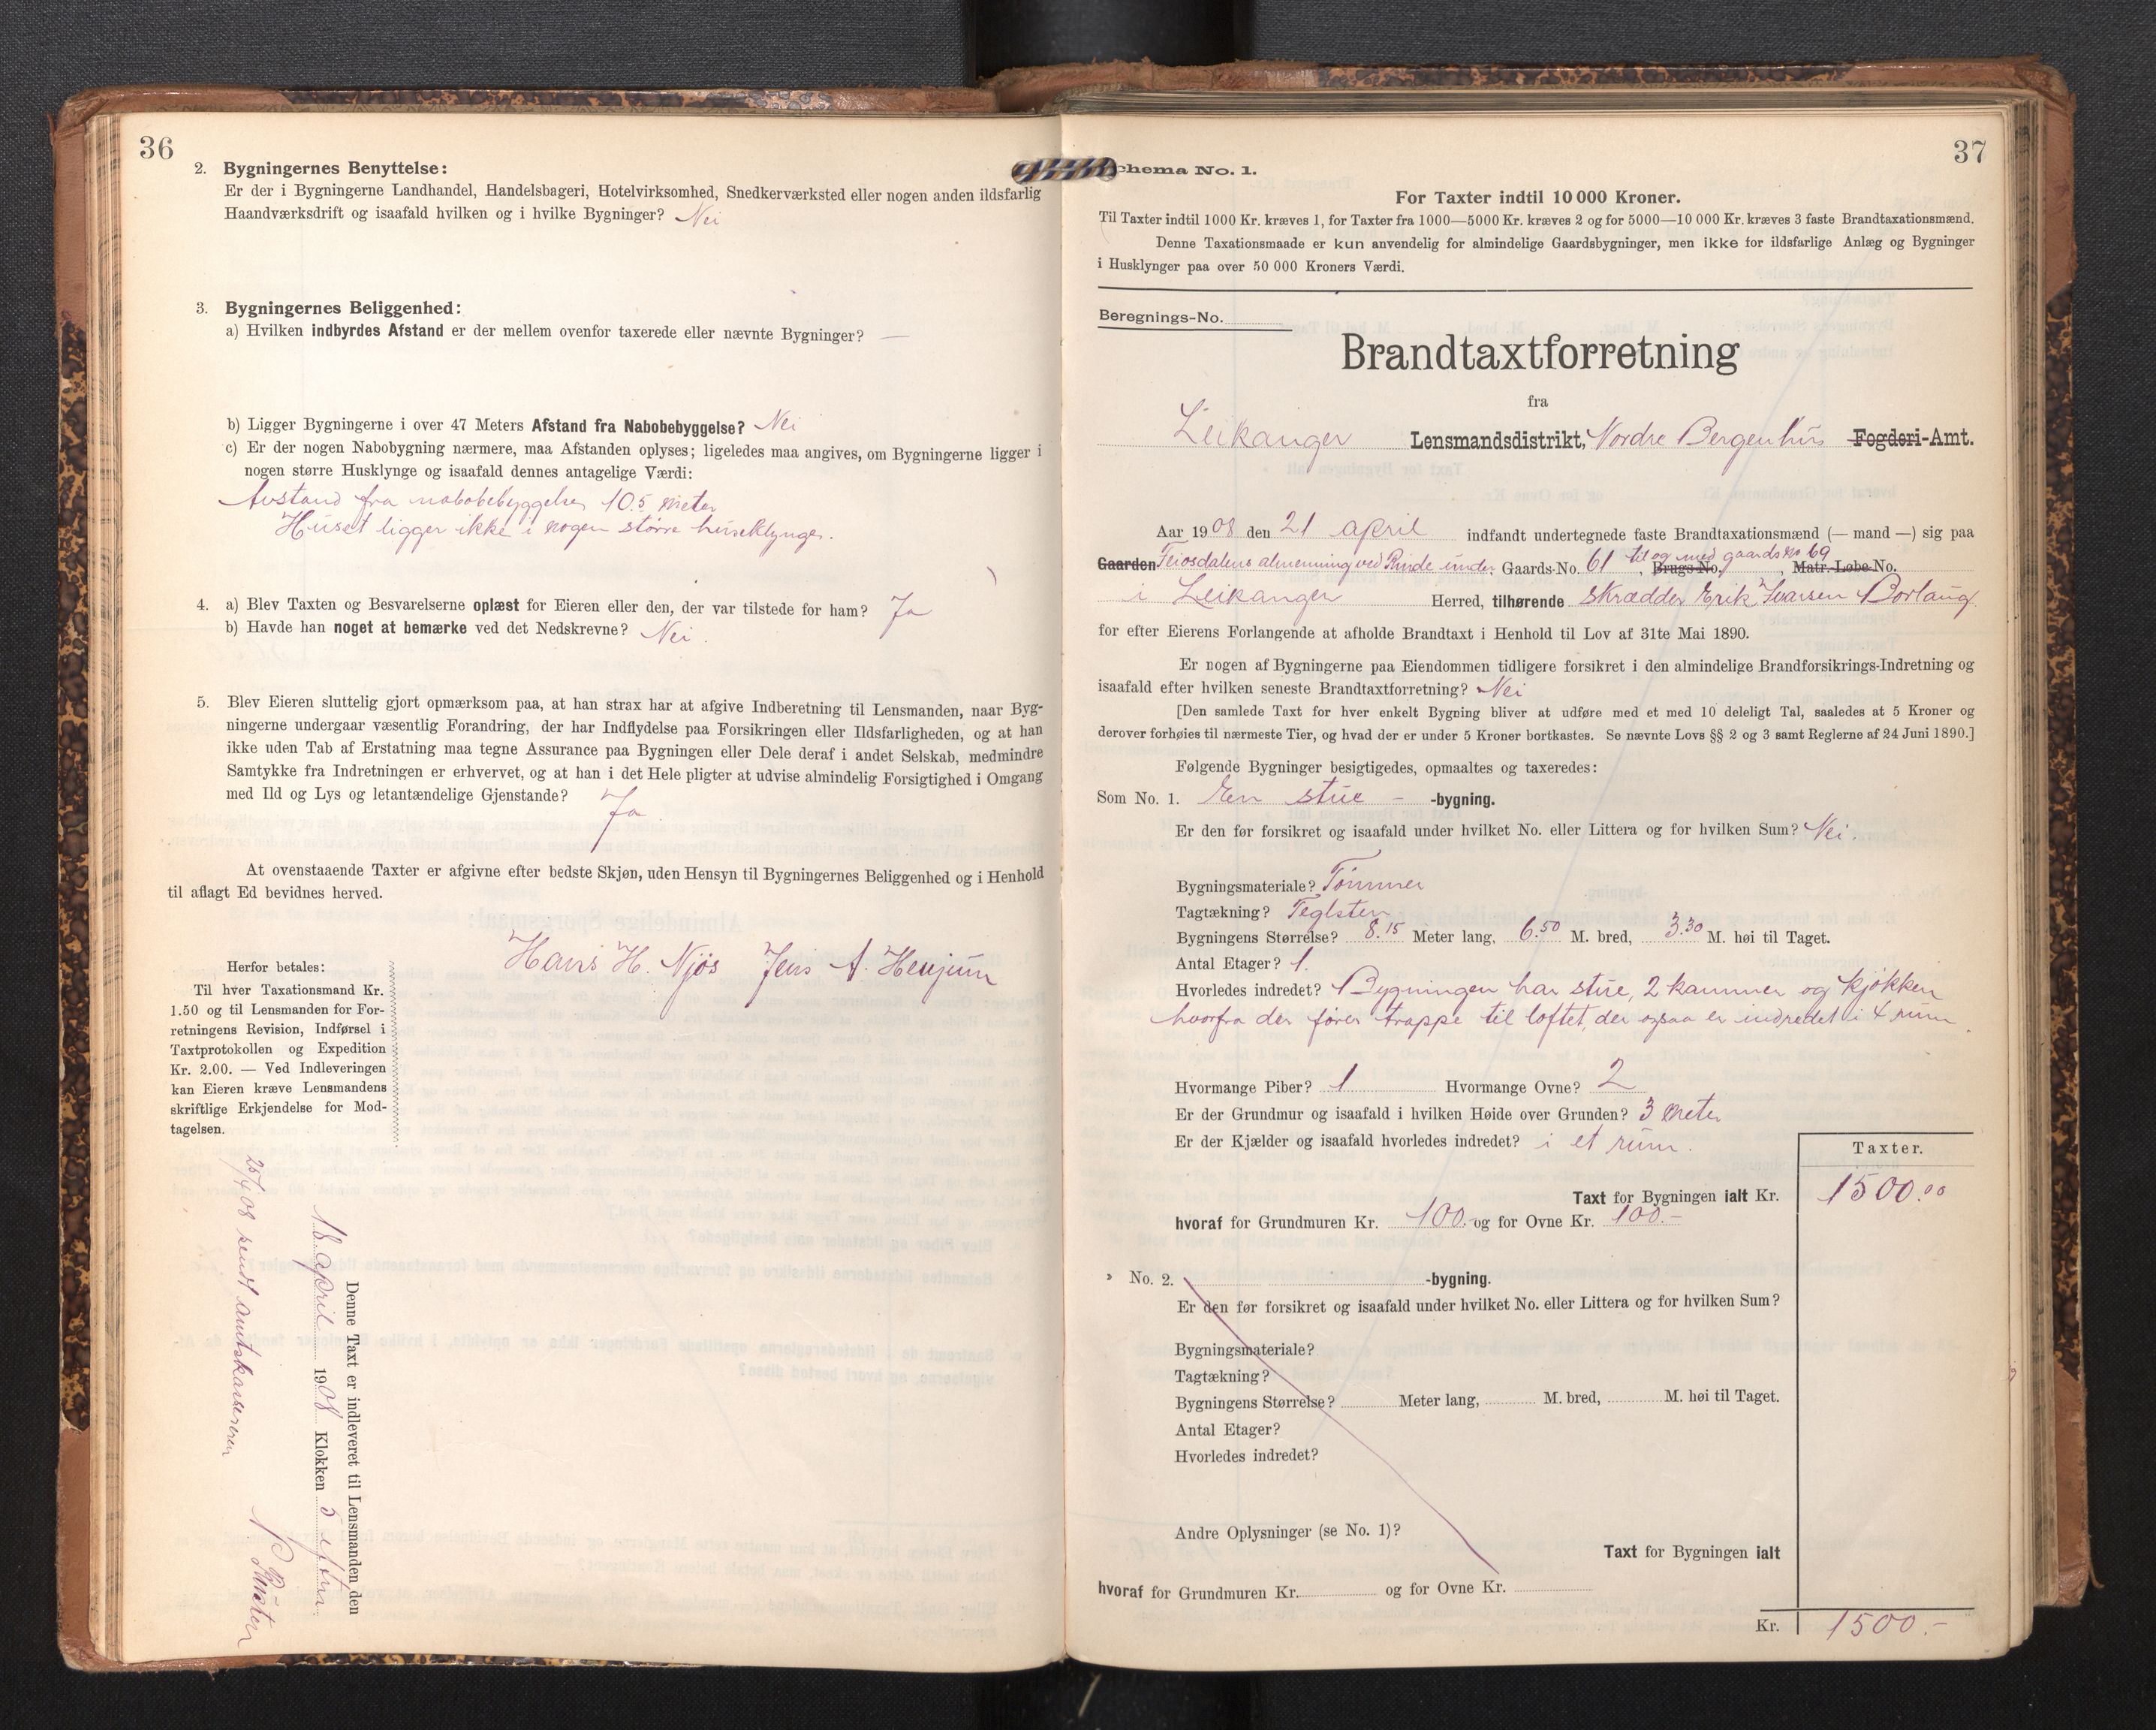 36
2. Bygningernes Benyttelse:
Er der i Bygningerne Landhandel, Handelsbageri, Hotelvirksomhed, Snedkerværksted eller nogen anden ildsfarlig
Haandværksdrift og isaafald hvilken og i hvilke Bygninger? Nei
3. Bygningernes Beliggenhed:
a) Hvilken indbyrdes Afstand er der mellem ovenfor taxerede eller nævnte Bygninger? —
b) Ligger Bygningerne i over 47 Meters Afstand fra Nabobebyggelse? Nei
c) Er der nogen Nabobygning nærmere, maa Afstanden oplyses; ligeledes maa angives, om Bygningerne ligger i
nogen større Husklynge og isaafald dennes antagelige Værdi:
Avstand fra nabobebyggelse 10.5 meter
Huset ligger ikke i nogen større huseklynge.
4. a) Blev Taxten og Besvarelserne oplæst for Eieren eller den, der var tilstede for ham? Ja
b) Havde han noget at bemærke ved det Nedskrevne? Nei.
5. Blev Eieren sluttelig gjort opmærksom paa, at han strax har at afgive Indberetning til Lensmanden, naar Byg-
ningerne undergaar væsentlig Forandring, der har Indflydelse paa Forsikringen eller Ildsfarligheden, og at han
ikke uden Tab af Erstatning maa tegne Assurance paa Bygningen eller Dele deraf i andet Selskab, medmindre
Samtykke fra Indretningen er erhvervet, og at han i det Hele pligter at udvise almindelig Forsigtighed i Omgang
med Ild og Lys og letantændelige Gjenstande? Ja
At ovenstaaende Taxter er afgivne efter bedste Skjøn, uden Hensyn til Bygningernes Beliggenhed og i Henhold
til aflagt Ed bevidnes herved.
Hans H. Njøs Jens A. Henjum
Herfor betales:
Til hver Taxationsmand Kr.
1.50 og til Lensmanden for For-
retningens Revision, Indførsel i
Taxtprotokollen og Expedition
Kr. 2.00. — Ved Indleveringen
kan Eieren kræve Lensmandens
skriftlige Erkjendelse for Mod-
tagelsen.
Denne Taxt er indleveret til Lensmanden den
18 april 1908 Klokken 5 efterm.
25/4 08 sendt amtskassereren
37
Schema No. 1.
For Taxter indtil 10 000 Kroner.
Til Taxter indtil 1000 Kr. kræves 1, for Taxter fra 1000—5000 Kr. kræves 2 og for 5000—10 000 Kr. kræves 3 faste Brandtaxationsmænd.
Denne Taxationsmaade er kun anvendelig for almindelige Gaardsbygninger, men ikke for ildsfarlige Anlæg og Bygninger
i Husklynger paa over 50 000 Kroners Værdi.
Beregnings-No.
Brandtaxtforretning
fra
Leikanger Lensmandsdistrikt, Nordre Bergenhus Fogderi-Amt.
Aar 1908 den 21 april indfandt undertegnede faste Brandtaxationsmænd (— mand —) sig paa
Gaarden Feiosdalens almenning ved Rinde under Gaards-No. 61 til og med gaards no 69, Brugs-No., Matr.-Løbe-No.
i Leikanger Herred, tilhørende skrædder Erik Ivarsen Borlaug
for efter Eierens Forlangende at afholde Brandtaxt i Henhold til Lov af 31te Mai 1890.
Er nogen af Bygningerne paa Eiendommen tidligere forsikret i den almindelige Brandforsikrings-Indretning og
isaafald efter hvilken seneste Brandtaxtforretning? Nei
[Den samlede Taxt for hver enkelt Bygning bliver at udføre med et med 10 deleligt Tal, saaledes at 5 Kroner og
derover forhøies til nærmeste Tier, og hvad der er under 5 Kroner bortkastes. Se nævnte Lovs §§ 2 og 3 samt Reglerne af 24 Juni 1890.]
Følgende Bygninger besigtigedes, opmaaltes og taxeredes:
Som No. 1. En stue - -bygning.
Er den før forsikret og isaafald under hvilket No. eller Littera og for hvilken Sum? Nei.
Bygningsmateriale? Tømmer
Tagtækning? Teglsten
Bygningens Størrelse? 8.15 Meter lang, 6.50 M. bred, 3.30 M. høi til Taget.
Antal Etager? 1.
Hvorledes indredet? Bygningen har stue, 2 kammer og kjøkken
hvorfra der fører trappe til loftet, der ogsaa er indredet i 4 rum.
Hvormange Piber? 1 Hvormange Ovne? 2
Er der Grundmur og isaafald i hvilken Høide over Grunden? 3 meter
Er der Kjælder og isaafald hvorledes indredet? i et rum.
Taxter.
Taxt for Bygningen ialt Kr. 1500.00
hvoraf for Grundmuren Kr. 100.- og for Ovne Kr. 100.-
» No. 2. -bygning.
Er den før forsikret og isaafald under hvilket No. eller Littera og for hvilken Sum?
Bygningsmateriale?
Tagtækning?
Bygningens Størrelse? Meter lang, M. bred, M. høi til Taget.
Antal Etager?
Hvorledes indredet?
Andre Oplysninger (se No. 1)?
Taxt for Bygningen ialt
hvoraf for Grundmuren Kr. og for Ovne Kr.
Kr. 1500.-